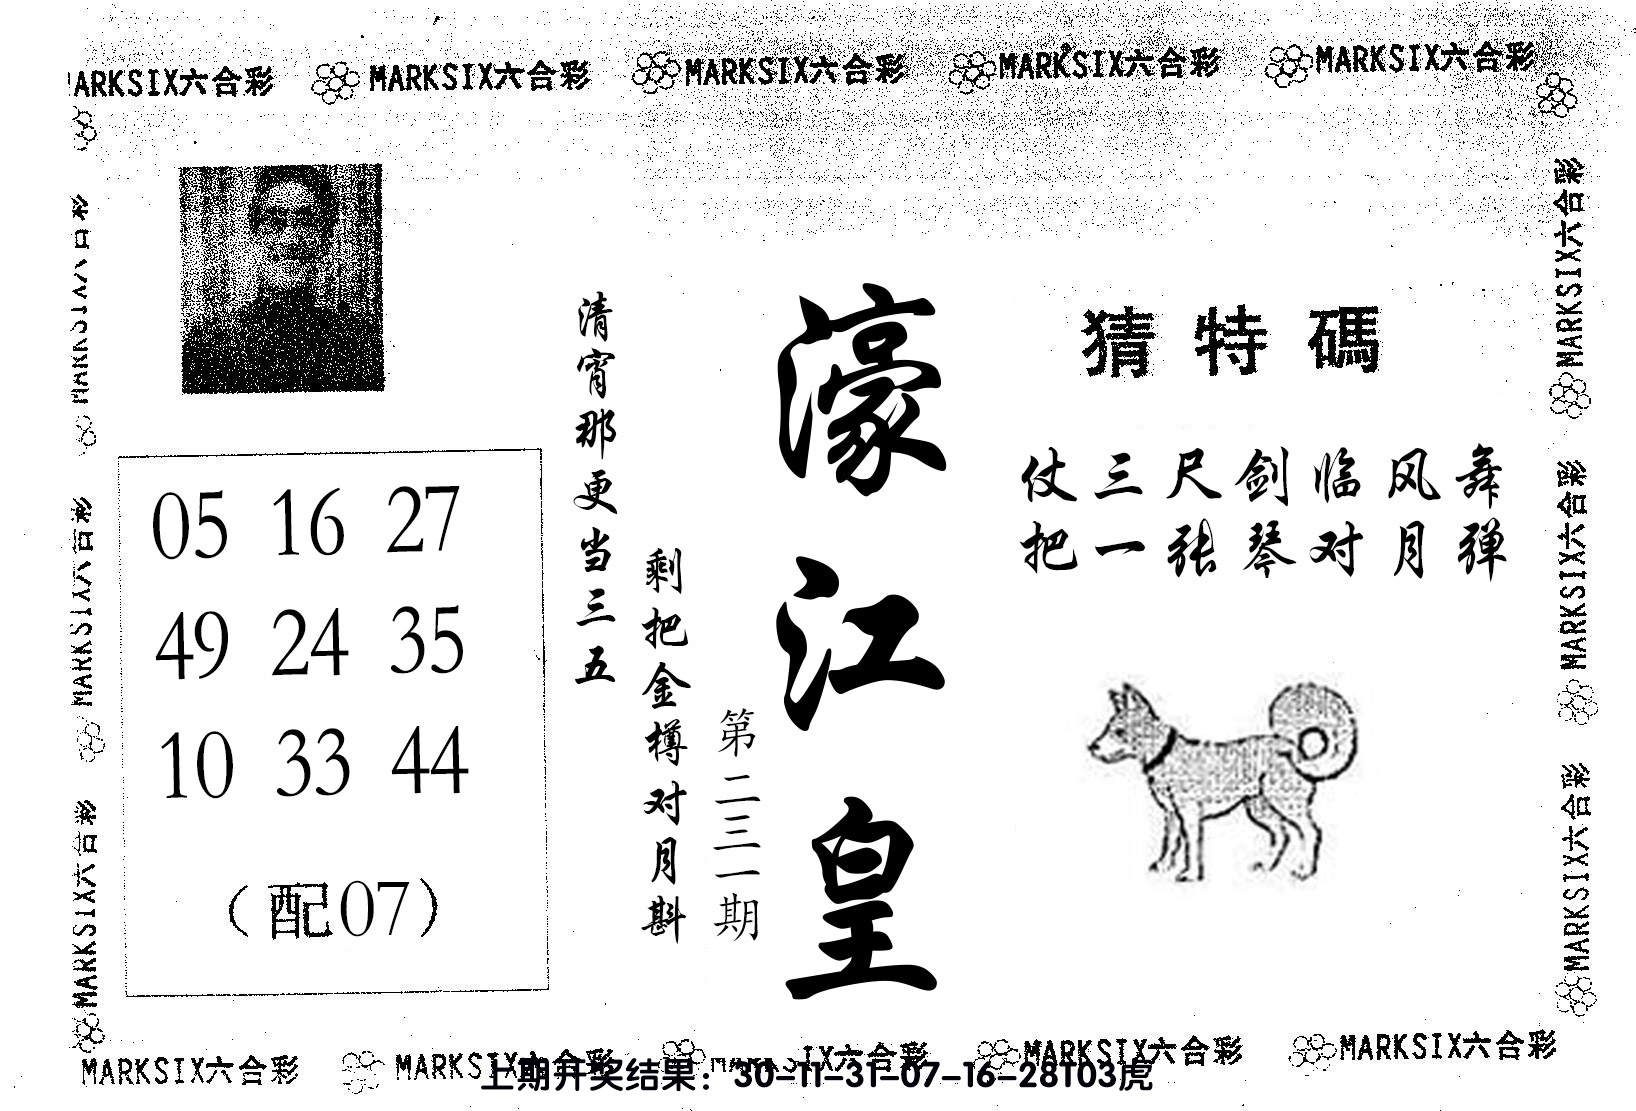 MARKSIX六合彩 MARKSIX六合彩 MARKSIX六合彩 MARKSIX六合彩 MARKSIX六合彩
猜特碼
仗三尺剑临风舞
把一张琴对月弹
濠江皇
第二三一期
清宵那更当三五
剩把金樽对月斟
05 16 27
49 24 35
10 33 44
（配07）
MARKSIX六合彩
MARKSIX六合彩
MARKSIX六合彩
MARKSIX六合彩
MARKSIX六合彩
MARKSIX六合彩
MARKSIX六合彩 MARKSIX六合彩 MARKSIX六合彩 MARKSIX六合彩 MARKSIX六合彩
上期开奖结果：30-11-31-07-16-28T03虎